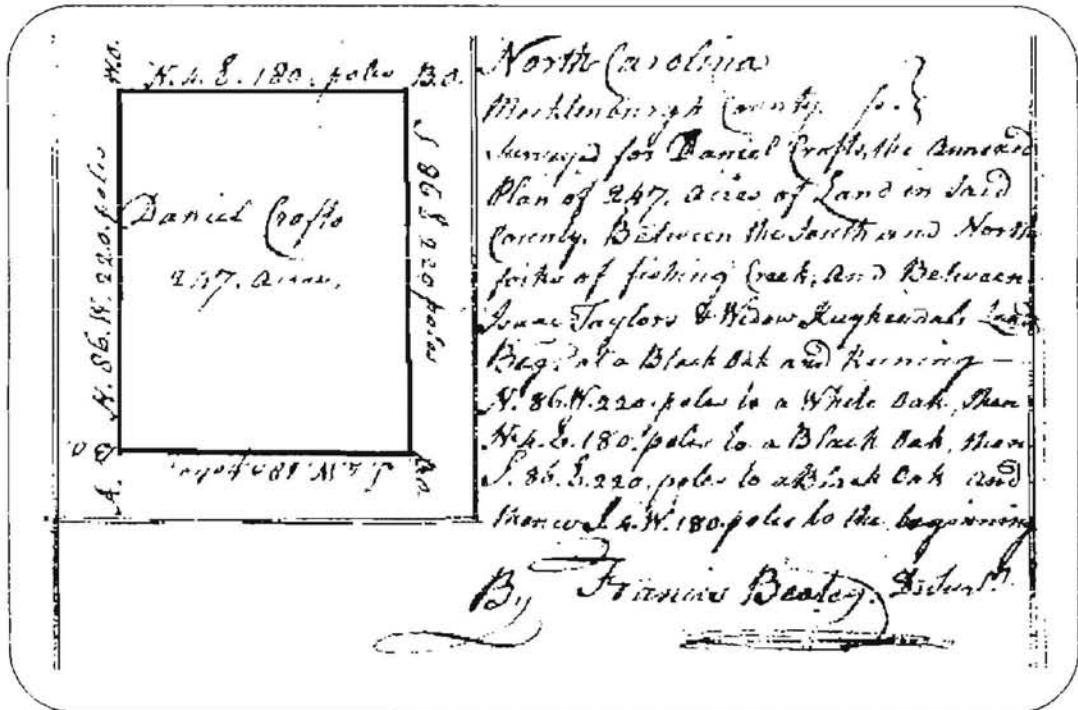 N. 4. E. 180. poles B.O.
W.O.
N. 86. W. 220. poles
S 86 E 220 poles
Daniel Crafts
247. acres.
B.O.
A.
S. 4. W. 180 poles
B.O.
North Carolina
Mecklenburgh County. ss. }
Surveyed for Daniel Crafts, the annexed
Plan of 247. acres of Land in said
County. Between the South and North
forks of fishing Creek, and Between
Isaac Taylors & Widow Kuykendals Land
Beg. at a Black Oak and Runing —
N. 86. W. 220. poles to a White Oak, then
N. 4. E. 180. poles to a Black Oak, then
S. 86. E. 220. poles to a Black Oak and
thence S. 4. W. 180. poles to the beginning
By Francis Beatey.